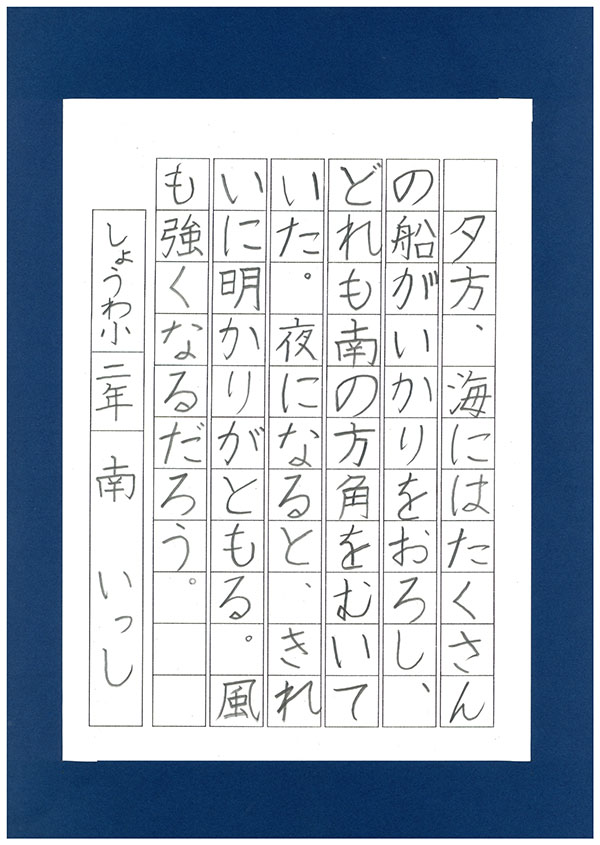 夕方、海にはたくさん
の船がいかりをおろし、
どれも南の方角をむいて
いた。夜になると、きれ
いに明かりがともる。風
も強くなるだろう。
しょうわ小 二年 南 いっし